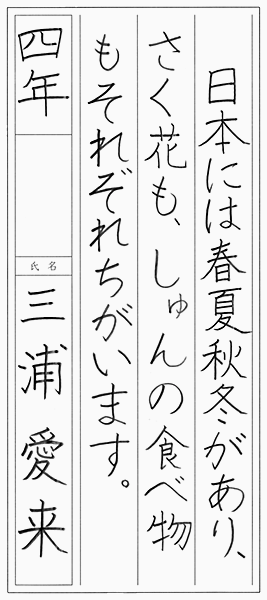 日本には春夏秋冬があり、
さく花も、しゅんの食べ物
もそれぞれちがいます。
四年
氏名
三浦愛来